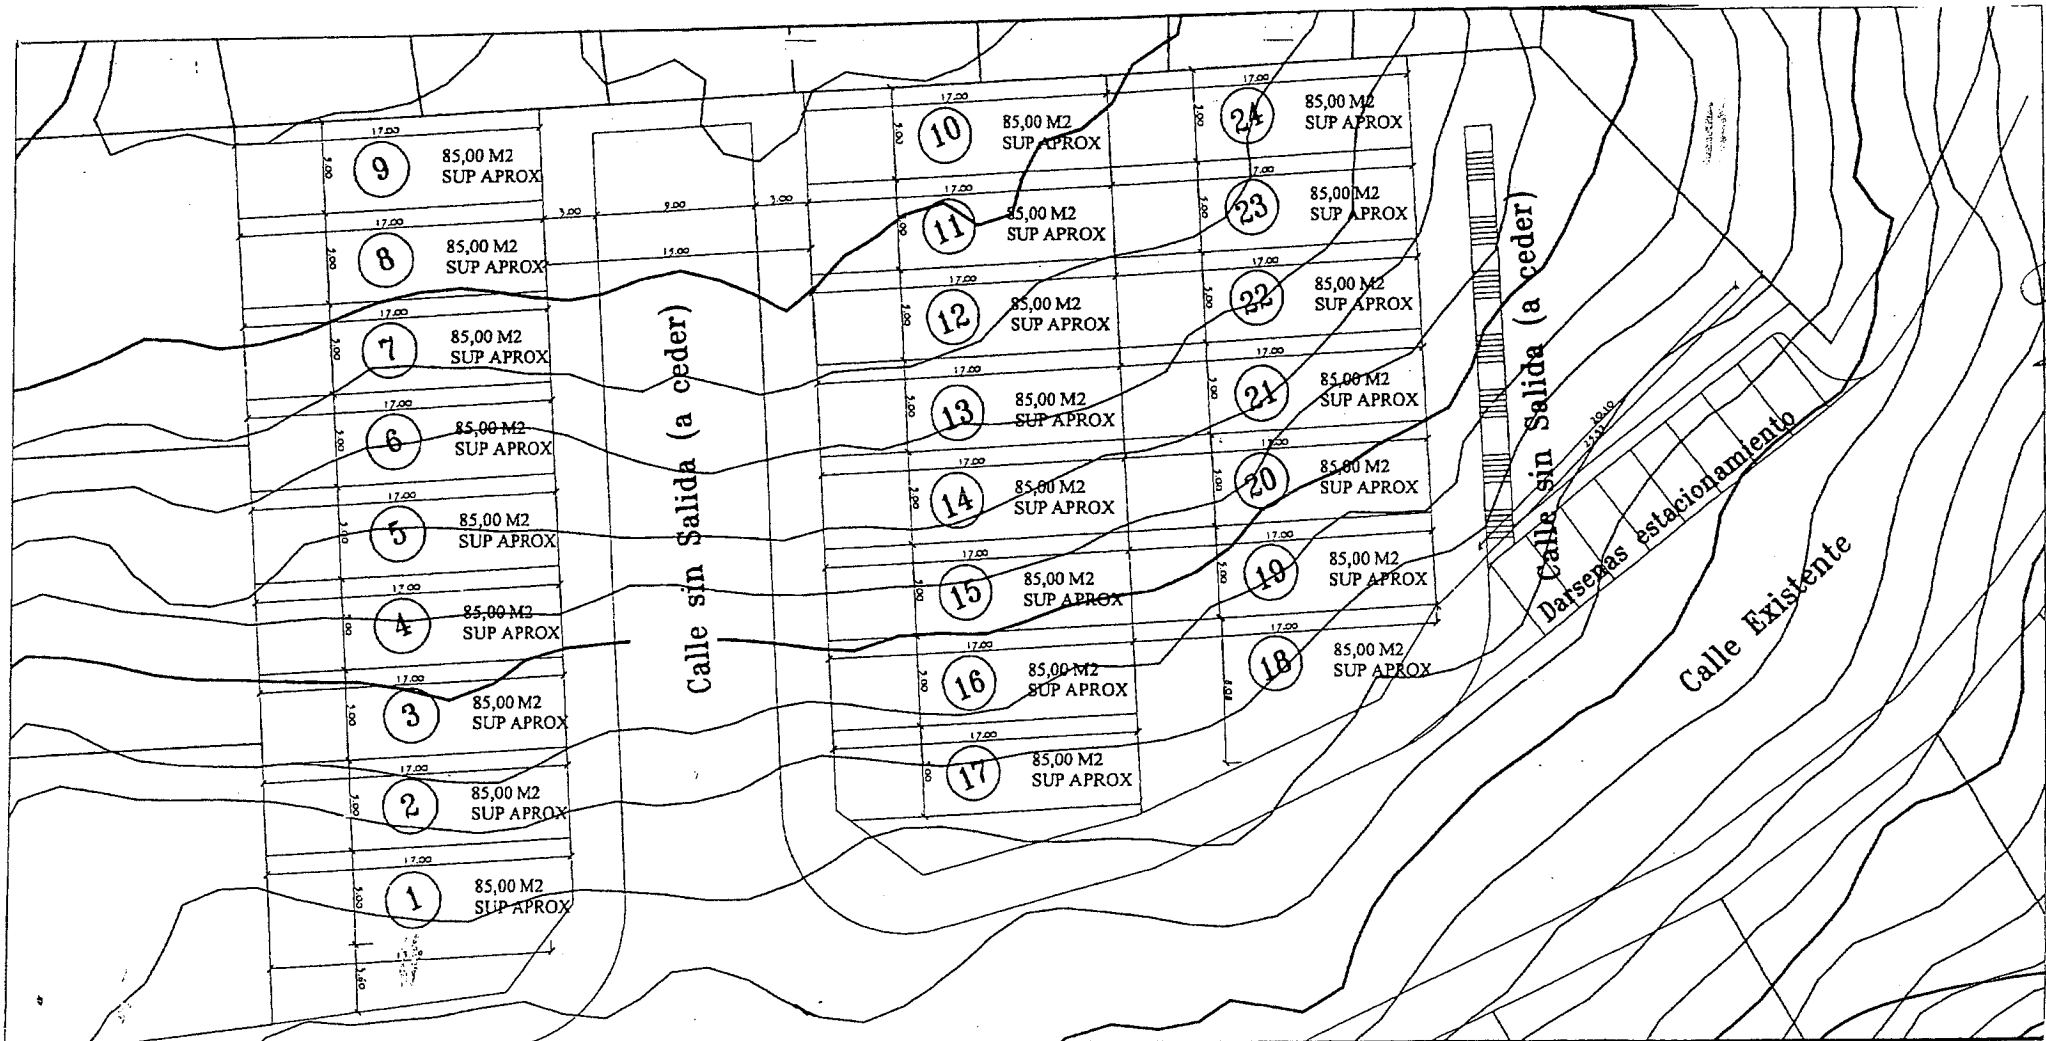 17.00
5.00
9
85,00 M2
SUP APROX
17.00
5.00
8
85,00 M2
SUP APROX
17.00
5.00
7
85,00 M2
SUP APROX
17.00
5.00
6
85,00 M2
SUP APROX
17.00
5.00
5
85,00 M2
SUP APROX
17.00
5.00
4
85,00 M2
SUP APROX
17.00
5.00
3
85,00 M2
SUP APROX
17.00
5.00
2
85,00 M2
SUP APROX
17.00
5.00
1
85,00 M2
SUP APROX
3.00
9.00
3.00
15.00
Calle sin Salida (a ceder)
17.00
5.00
10
85,00 M2
SUP APROX
17.00
5.00
11
85,00 M2
SUP APROX
17.00
5.00
12
85,00 M2
SUP APROX
17.00
5.00
13
85,00 M2
SUP APROX
17.00
5.00
14
85,00 M2
SUP APROX
17.00
5.00
15
85,00 M2
SUP APROX
17.00
5.00
16
85,00 M2
SUP APROX
17.00
5.00
17
85,00 M2
SUP APROX
17.00
5.00
24
85,00 M2
SUP APROX
17.00
5.00
23
85,00 M2
SUP APROX
17.00
5.00
22
85,00 M2
SUP APROX
17.00
5.00
21
85,00 M2
SUP APROX
17.00
5.00
20
85,00 M2
SUP APROX
17.00
5.00
19
85,00 M2
SUP APROX
17.00
18
85,00 M2
SUP APROX
Calle sin Salida (a ceder)
Darsenas estacionamiento
Calle Existente